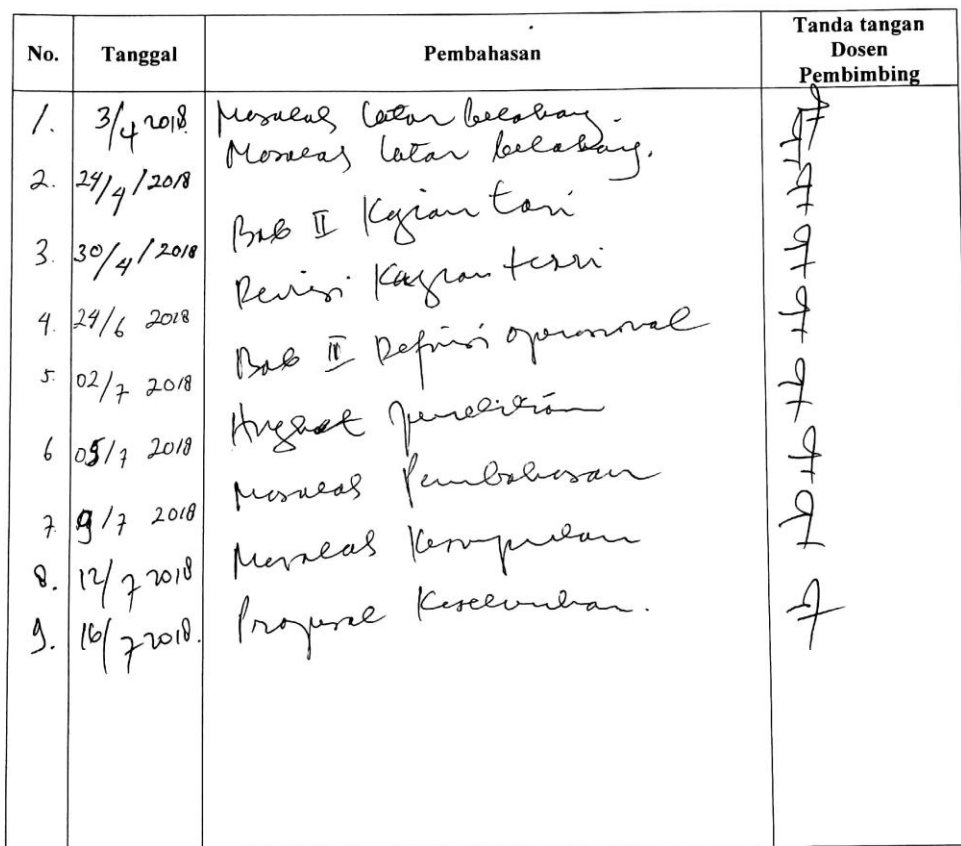 No. Tanggal Pembahasan Tanda tangan
Dosen
Pembimbing
1. 3/4 2018 Masalah latar belakang.
Masalah latar belakang.
2. 24/4/2018
Bab II Kajian teori
3. 30/4/2018
Revisi Kajian teori
4. 24/6 2018
Bab II Definisi operasional
5. 02/7 2018
penelitian
6 05/7 2018
Masalah Pembahasan
7. 9/7 2018
Masalah Kesimpulan
8. 12/7 2018
Proposal Keseluruhan.
9. 16/7 2018.